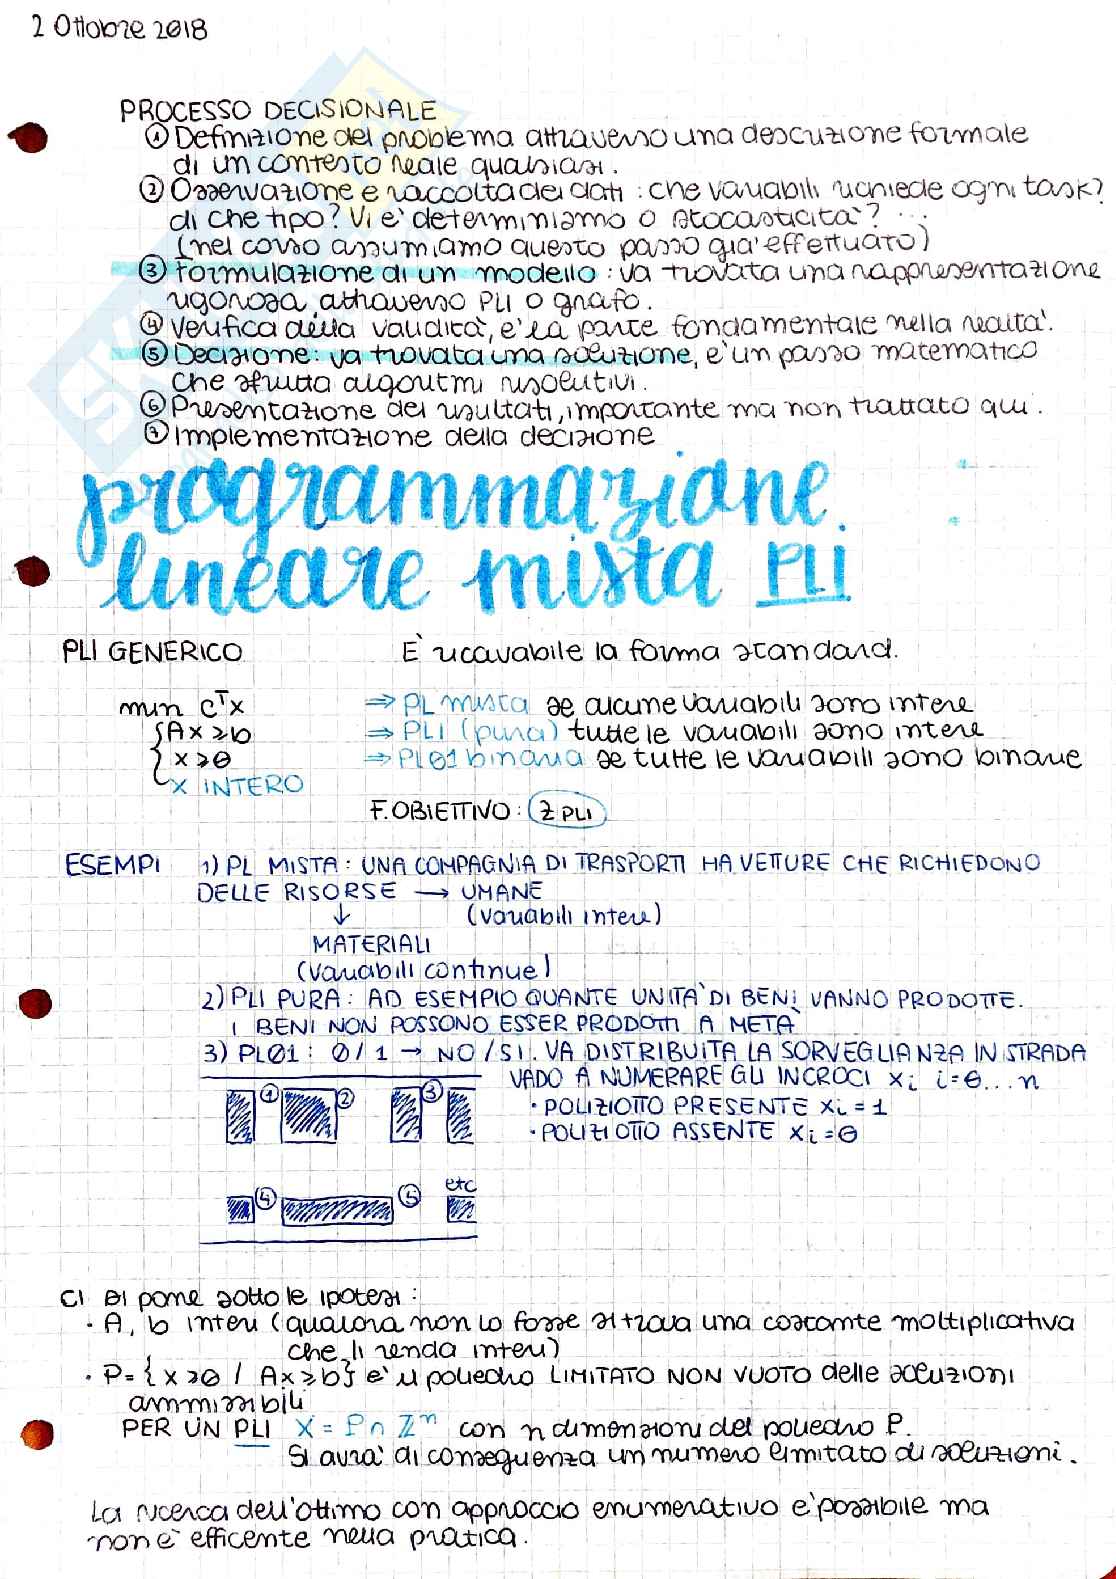 2 Ottobre 2018
PROCESSO DECISIONALE
① Definizione del problema attraverso una descrizione formale
di un contesto reale qualsiasi.
② Osservazione e raccolta dei dati : che variabili richiede ogni task?
di che tipo? Vi e' determinismo o stocasticita'? ...
(nel corso assumiamo questo passo gia' effettuato)
③ Formulazione di un modello : va trovata una rappresentazione
rigorosa attraverso PLI o grafo.
④ Verifica della validita', e' la parte fondamentale nella realta'.
⑤ Decisione: va trovata una soluzione, e' un passo matematico
che sfrutta algoritmi risolutivi.
⑥ Presentazione dei risultati, importante ma non trattato qui.
⑦ Implementazione della decisione
programmazione
lineare mista PLI
PLI GENERICO
È ricavabile la forma standard.
min cᵀx
⇒ PL mista se alcune variabili sono intere
Ax ≥ b
⇒ PLI (pura) tutte le variabili sono intere
x ≥ 0
⇒ PL01 binaria se tutte le variabili sono binarie
x INTERO
F. OBIETTIVO : Z PLI
ESEMPI 1) PL MISTA : UNA COMPAGNIA DI TRASPORTI HA VETTURE CHE RICHIEDONO
DELLE RISORSE → UMANE
↓ (variabili intere)
MATERIALI
(variabili continue)
2) PLI PURA : AD ESEMPIO QUANTE UNITA' DI BENI VANNO PRODOTTE.
I BENI NON POSSONO ESSER PRODOTTI A META'
3) PL01 : 0/1 → NO/SI. VA DISTRIBUITA LA SORVEGLIANZA IN STRADA
VADO A NUMERARE GLI INCROCI xi i=0...n
① ② ③
· POLIZIOTTO PRESENTE xi = 1
· POLIZIOTTO ASSENTE xi = 0
④ ⑤ etc
Ci si pone sotto le ipotesi :
· A, b interi (qualora non lo fosse si trova una costante moltiplicativa
che li renda interi)
· P = { x ≥ 0 / Ax ≥ b } e' il poliedro LIMITATO NON VUOTO delle soluzioni
ammissibili
PER UN PLI X = P ∩ ℤⁿ con n dimensioni del poliedro P.
Si avra' di conseguenza un numero limitato di soluzioni.
La ricerca dell'ottimo con approccio enumerativo e' possibile ma
non e' efficente nella pratica.